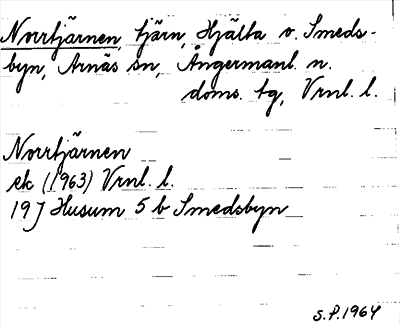 Norrtjärnen, tjärn, Hjälta o. Smeds-
byn, Arnäs sn, Ångermanl. n.
doms. tg, Vrnl. l.
Norrtjärnen
ek (1963) Vrnl. l.
19 J Husum 5 b Smedsbyn
S.P. 1964